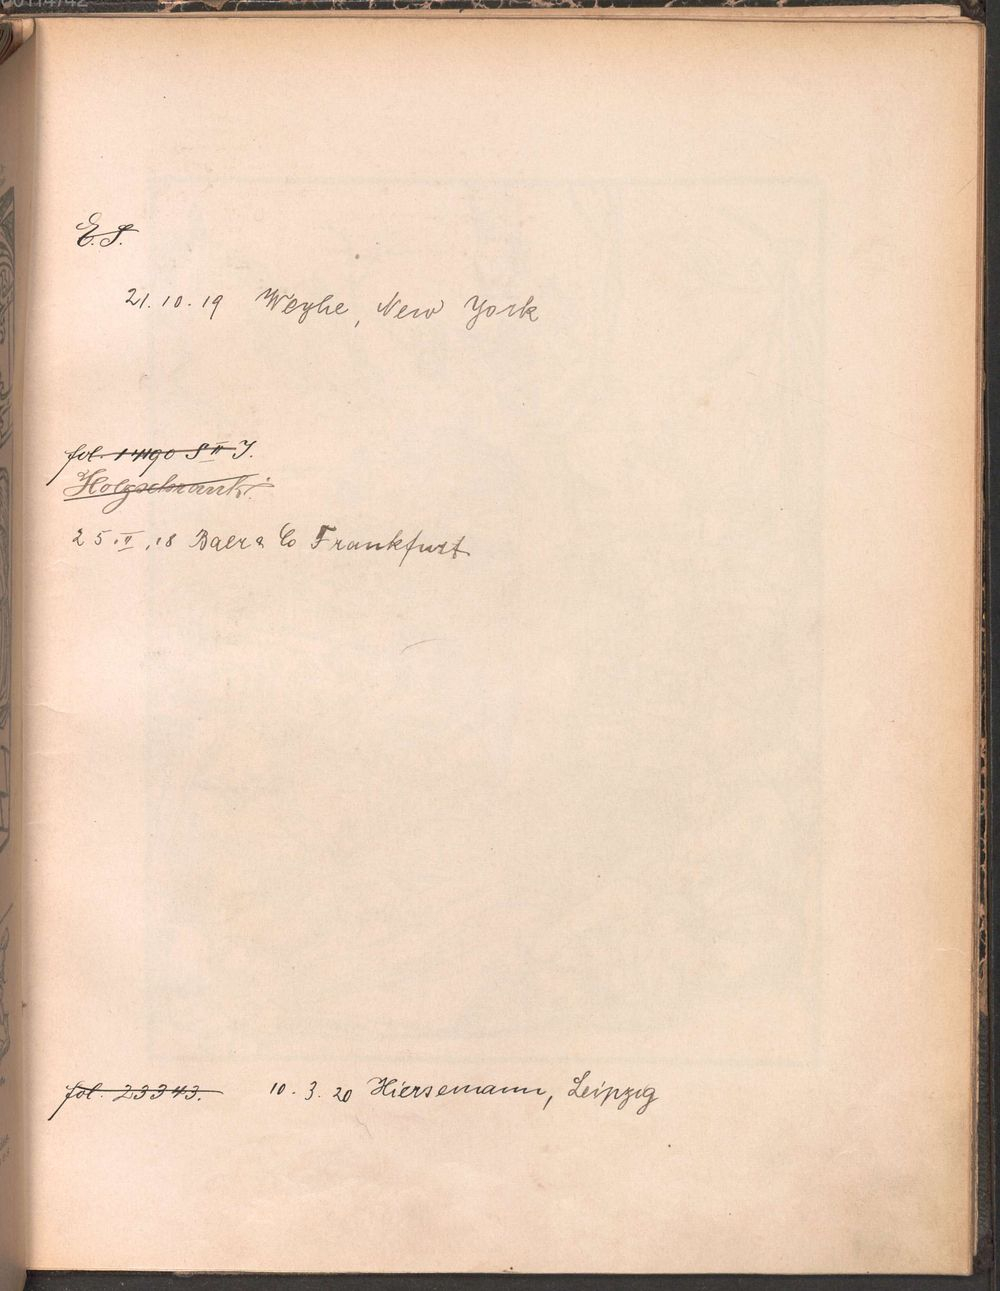 E. S.
21. 10. 19 Weyhe, New York
fol. 14190 S II J.
Holzschrank.
25. II. 18 Baer & Co Frankfurt
fol. 23343. 10. 3. 20 Hiersemann, Leipzig